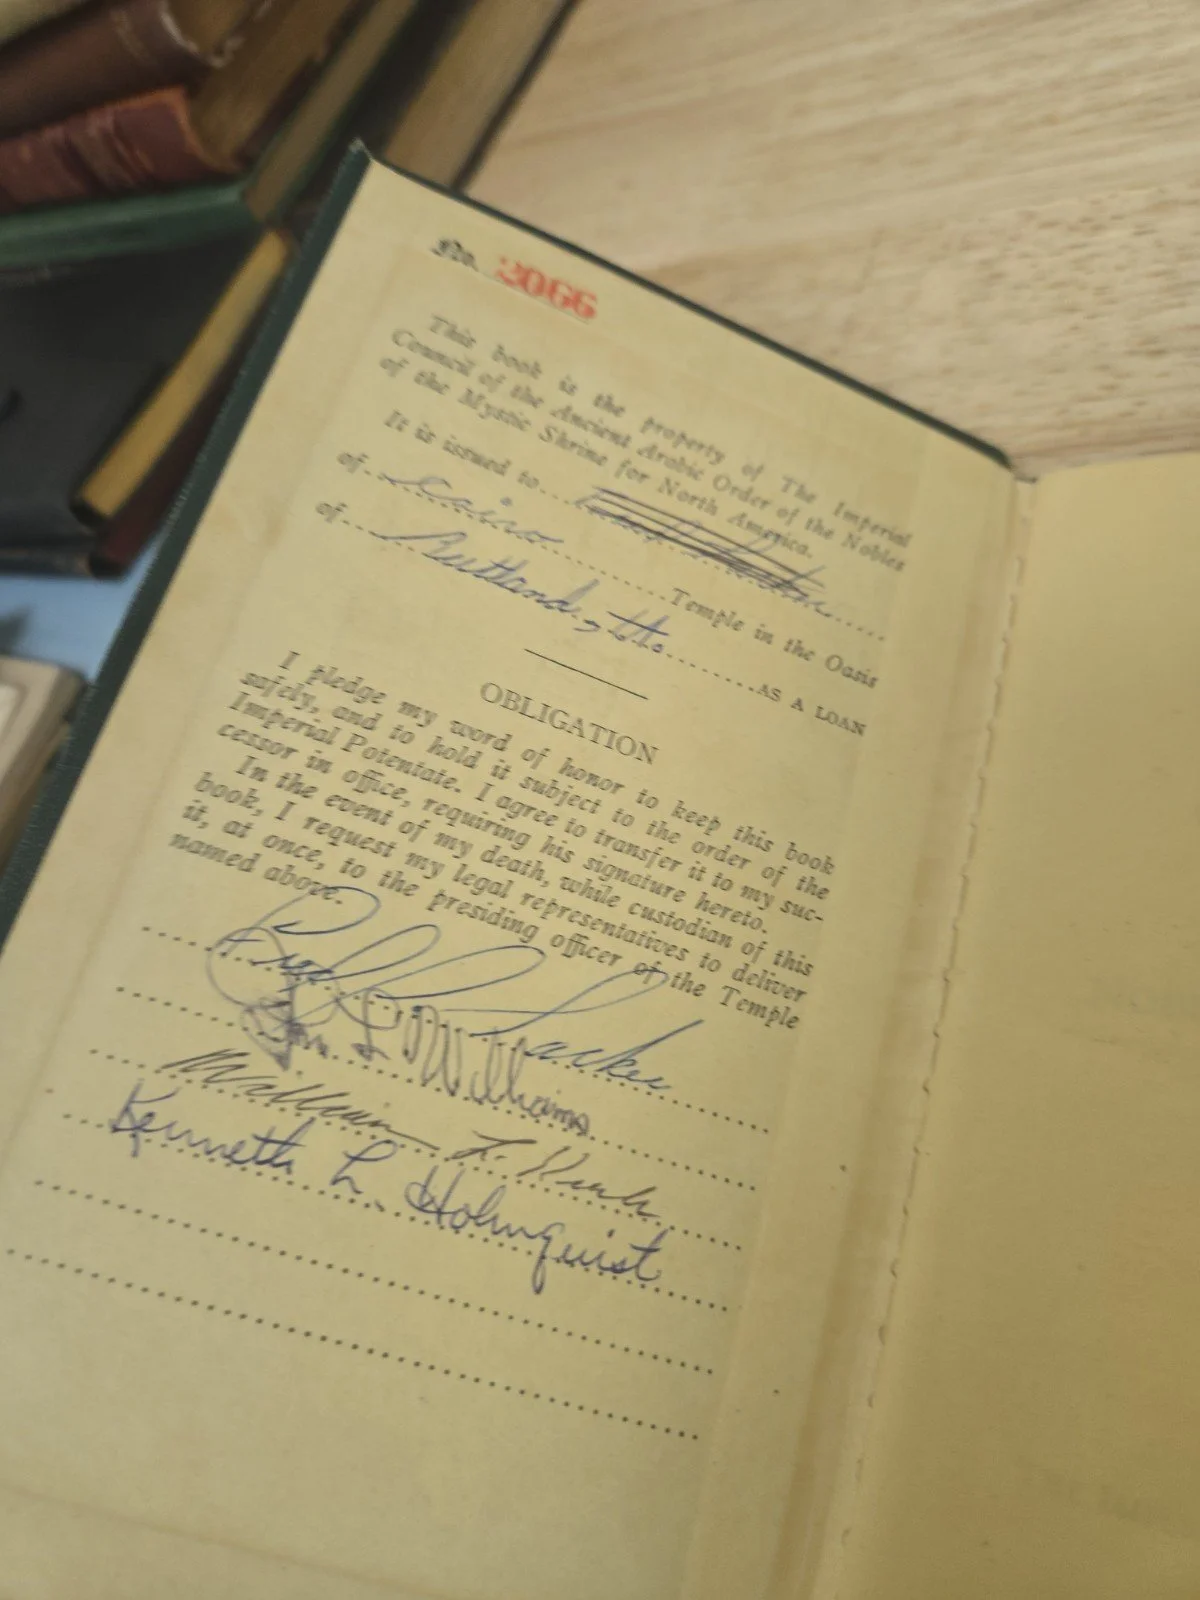 No. 2066
This book is the property of The Imperial
Council of the Ancient Arabic Order of the Nobles
of the Mystic Shrine for North America.
It is issued to
of Cairo Temple in the Oasis
of Rutland, AS A LOAN
OBLIGATION
I pledge my word of honor to keep this book
safely, and to hold it subject to the order of the
Imperial Potentate. I agree to transfer it to my suc-
cessor in office, requiring his signature hereto.
In the event of my death, while custodian of this
book, I request my legal representatives to deliver
it, at once, to the presiding officer of the Temple
named above.
Fred Packer
L Williams
William L.
Kenneth L. Holmquist